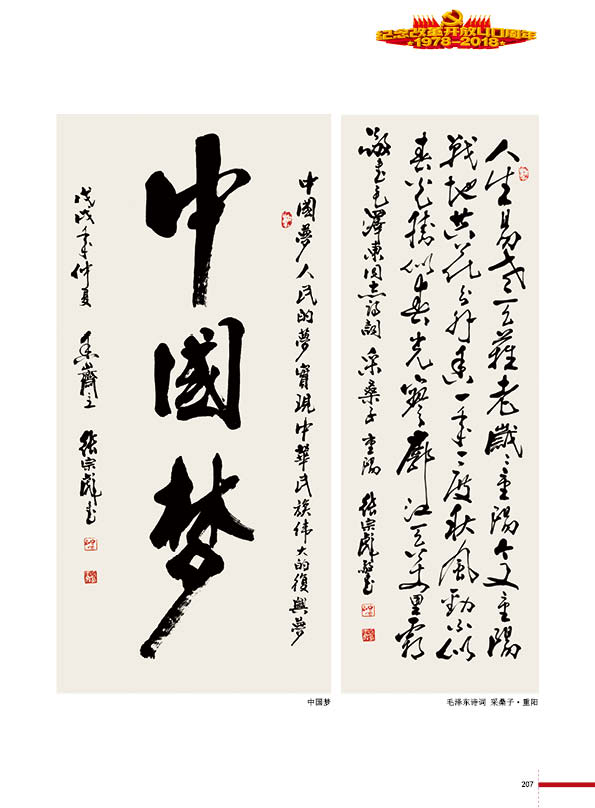 纪念改革开放40周年
1978-2018
人生易老天難老歲〻重陽今又重陽
戰地黄花分外香一年一度秋風勁不似
春光勝似春光寥廓江天萬里霜
敬書毛澤東同志詩詞 采桑子 重陽 張宗彪敬書
中國夢人民的夢實現中華民族偉大的復興夢
中國梦
戊戌年仲夏 齋主 張宗彪書
中国梦
毛泽东诗词 采桑子·重阳
207